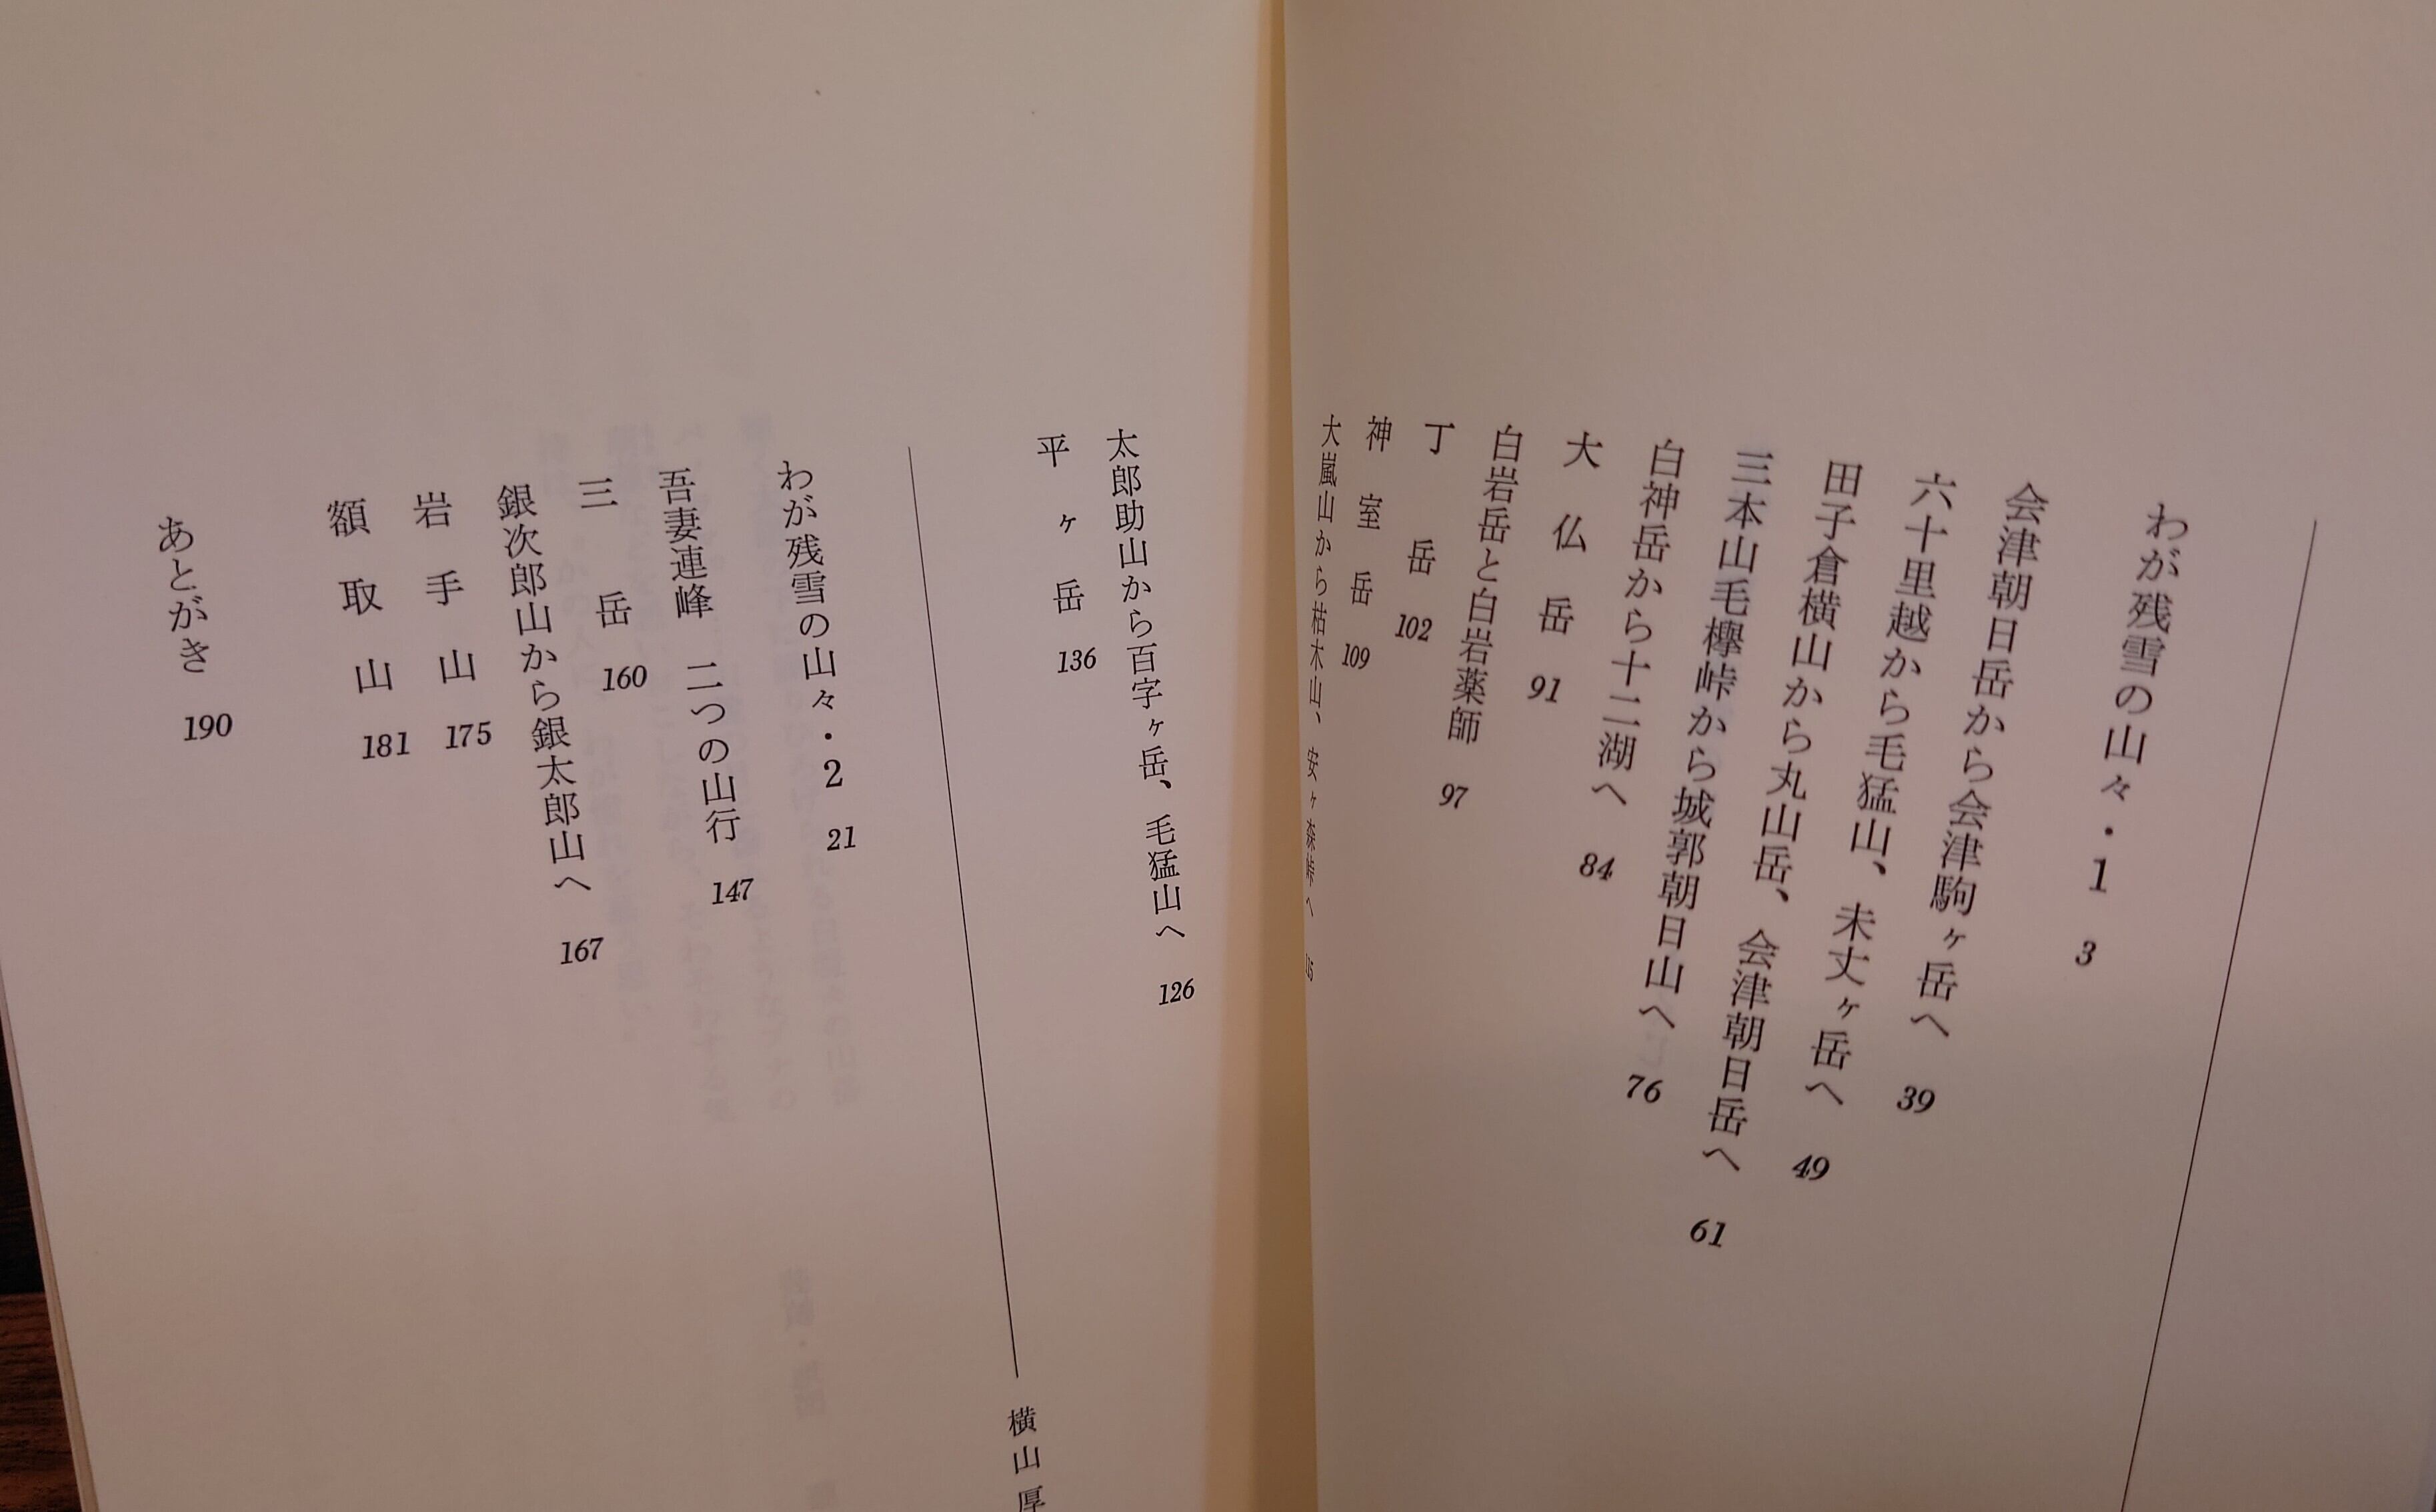 わが残雪の山々・1 3
会津朝日岳から会津駒ヶ岳へ 39
六十里越から毛猛山、未丈ヶ岳へ 49
田子倉横山から丸山岳、会津朝日岳へ 61
三本山毛欅峠から城郭朝日山へ 76
白神岳から十二湖へ 84
大仏岳 91
白岩岳と白岩薬師 97
丁岳 102
神室岳 109
大嵐山から枯木山、安ヶ森峠へ 115
太郎助山から百字ヶ岳、毛猛山へ 126
平ヶ岳 136
横山厚
わが残雪の山々・2 21
吾妻連峰 二つの山行 147
三岳 160
銀次郎山から銀太郎山へ 167
岩手山 175
額取山 181
あとがき 190